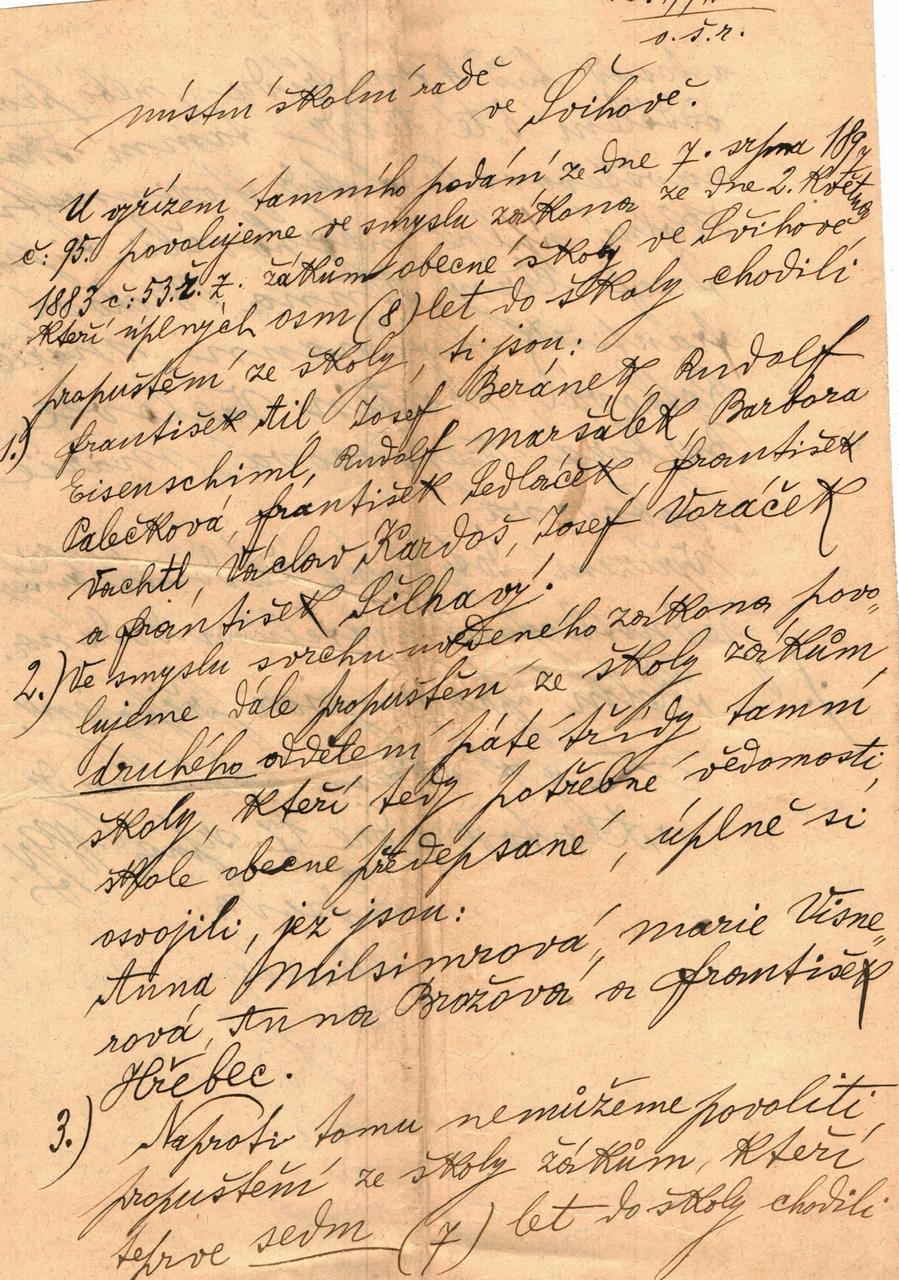 o. š. r.
místní školní radě
ve Švihově.
U vyřízení tamního podání ze dne 7. srpna 1897
č: 95. povolujeme ve smyslu zákona ze dne 2. května
1883 č: 53. ř. z. žákům obecné školy ve Švihově
kteří úplných osm (8) let do školy chodili
propuštění ze školy, ti jsou:
1.) František Ail, Josef Beránek, Rudolf
Eisenschiml, Rudolf Maršálek, Barbora
Palečková, František Sedláček, František
Vachtl, Václav Kardoš, Josef Voráček
a František Šilhavý.
2.) Ve smyslu svrchu uvedeného zákona povo„
lujeme dále propuštění ze školy žákům
druhého oddělení páté třídy tamní
školy, kteří tedy potřebné vědomosti,
škole obecné předepsané, úplně si
osvojili, jež jsou:
Anna Milsimrová, Marie Visne„
rová, Anna Brožová a František
Hřebec.
3.) Naproti tomu nemůžeme povoliti
propuštění ze školy žákům, kteří
teprve sedm (7) let do školy chodili